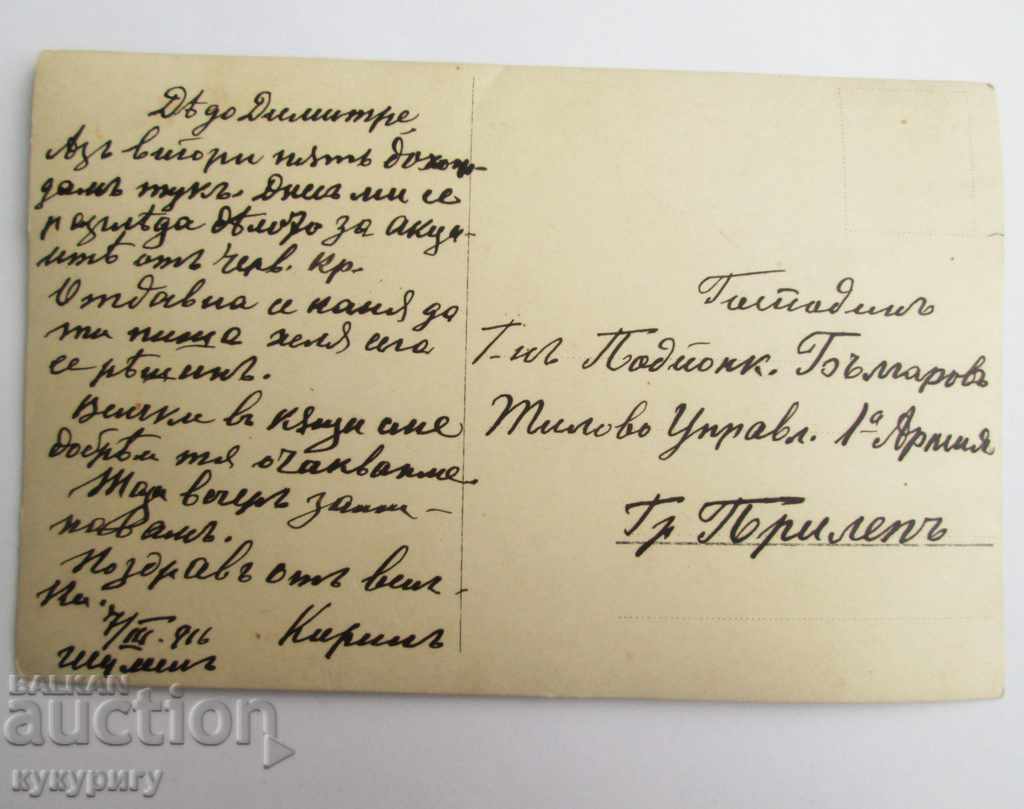 Дѣдо Димитре
Азъ втори пять дохож-
дамъ тукъ. Днесъ ми се
разглѣда дѣлото за акци-
итѣ отъ Черв. Кр.
Отдавна се каня да
ти пиша сега
се рѣшихъ.
Всички въ кящи сме
добрѣ и тя очакваме.
Тази вечеръ зами-
навамъ.
Поздравъ отъ всич-
ки.
7/III.916 Кирилъ
Шуменъ
Господинъ
Г-нъ Подполк. Българовъ
Тилово Управл. 1а Армия
Гр Прилепъ
BALKAN
auction
кукуригу